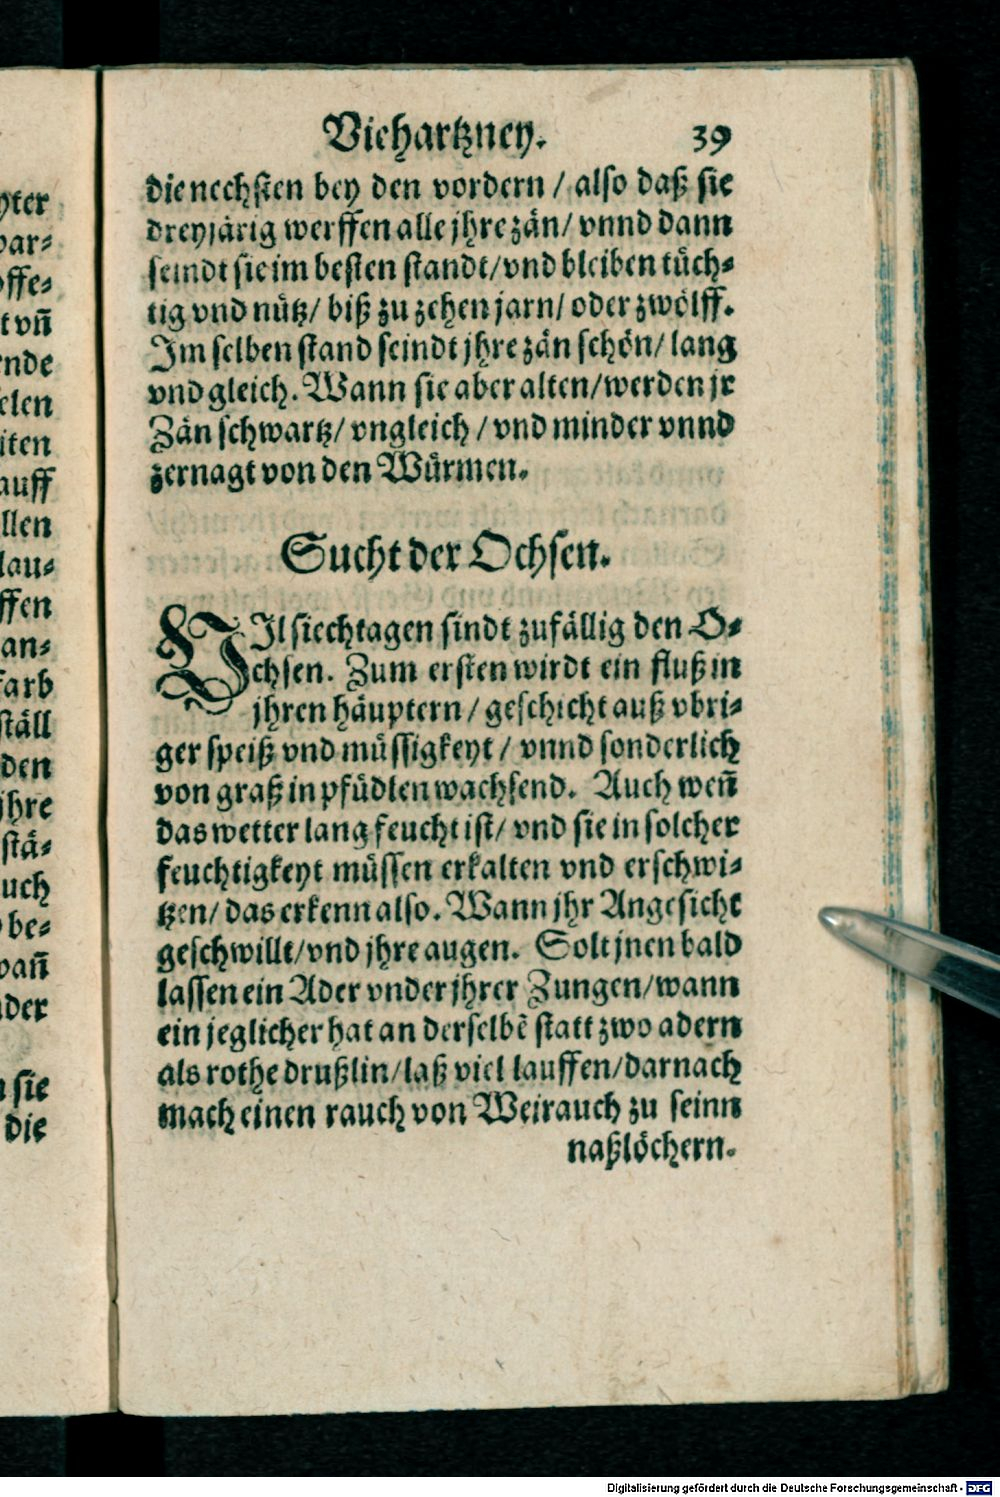 Viehartzney. 39
die nechsten bey den vordern / also daß sie
dreyjärig werffen alle jhre zän / vnnd dann
seindt sie im besten standt / vnd bleiben tüch-
tig vnd nütz / biß zu zehen jarn / oder zwölff.
Im selben stand seindt jhre zän schön / lang
vnd gleich. Wann sie aber alten / werden jr
Zän schwartz / vngleich / vnd minder vnnd
zernagt von den Würmen.
Sucht der Ochsen.
VIl siechtagen sindt zufällig den O-
chsen. Zum ersten wirdt ein fluß in
jhren häuptern / geschicht auß vbri-
ger speiß vnd müssigkeyt / vnnd sonderlich
von graß in pfüdlen wachsend. Auch wen̄
das wetter lang feucht ist / vnd sie in solcher
feuchtigkeyt müssen erkalten vnd erschwi-
tzen / das erkenn also. Wann jhr Angesicht
geschwillt / vnd jhre augen. Solt jnen bald
lassen ein Ader vnder jhrer Zungen / wann
ein jeglicher hat an derselbē statt zwo adern
als rothe drußlin / laß viel lauffen / darnach
mach einen rauch von Weirauch zu seinn
naßlöchern.
yter
offe-
t vn̄
ende
elen
iten
auff
llen
lau-
ffen
an-
farb
ställ
den
jhre
stä-
uch
be-
wan̄
der
sie
die
Digitalisierung gefördert durch die Deutsche Forschungsgemeinschaft - DFG